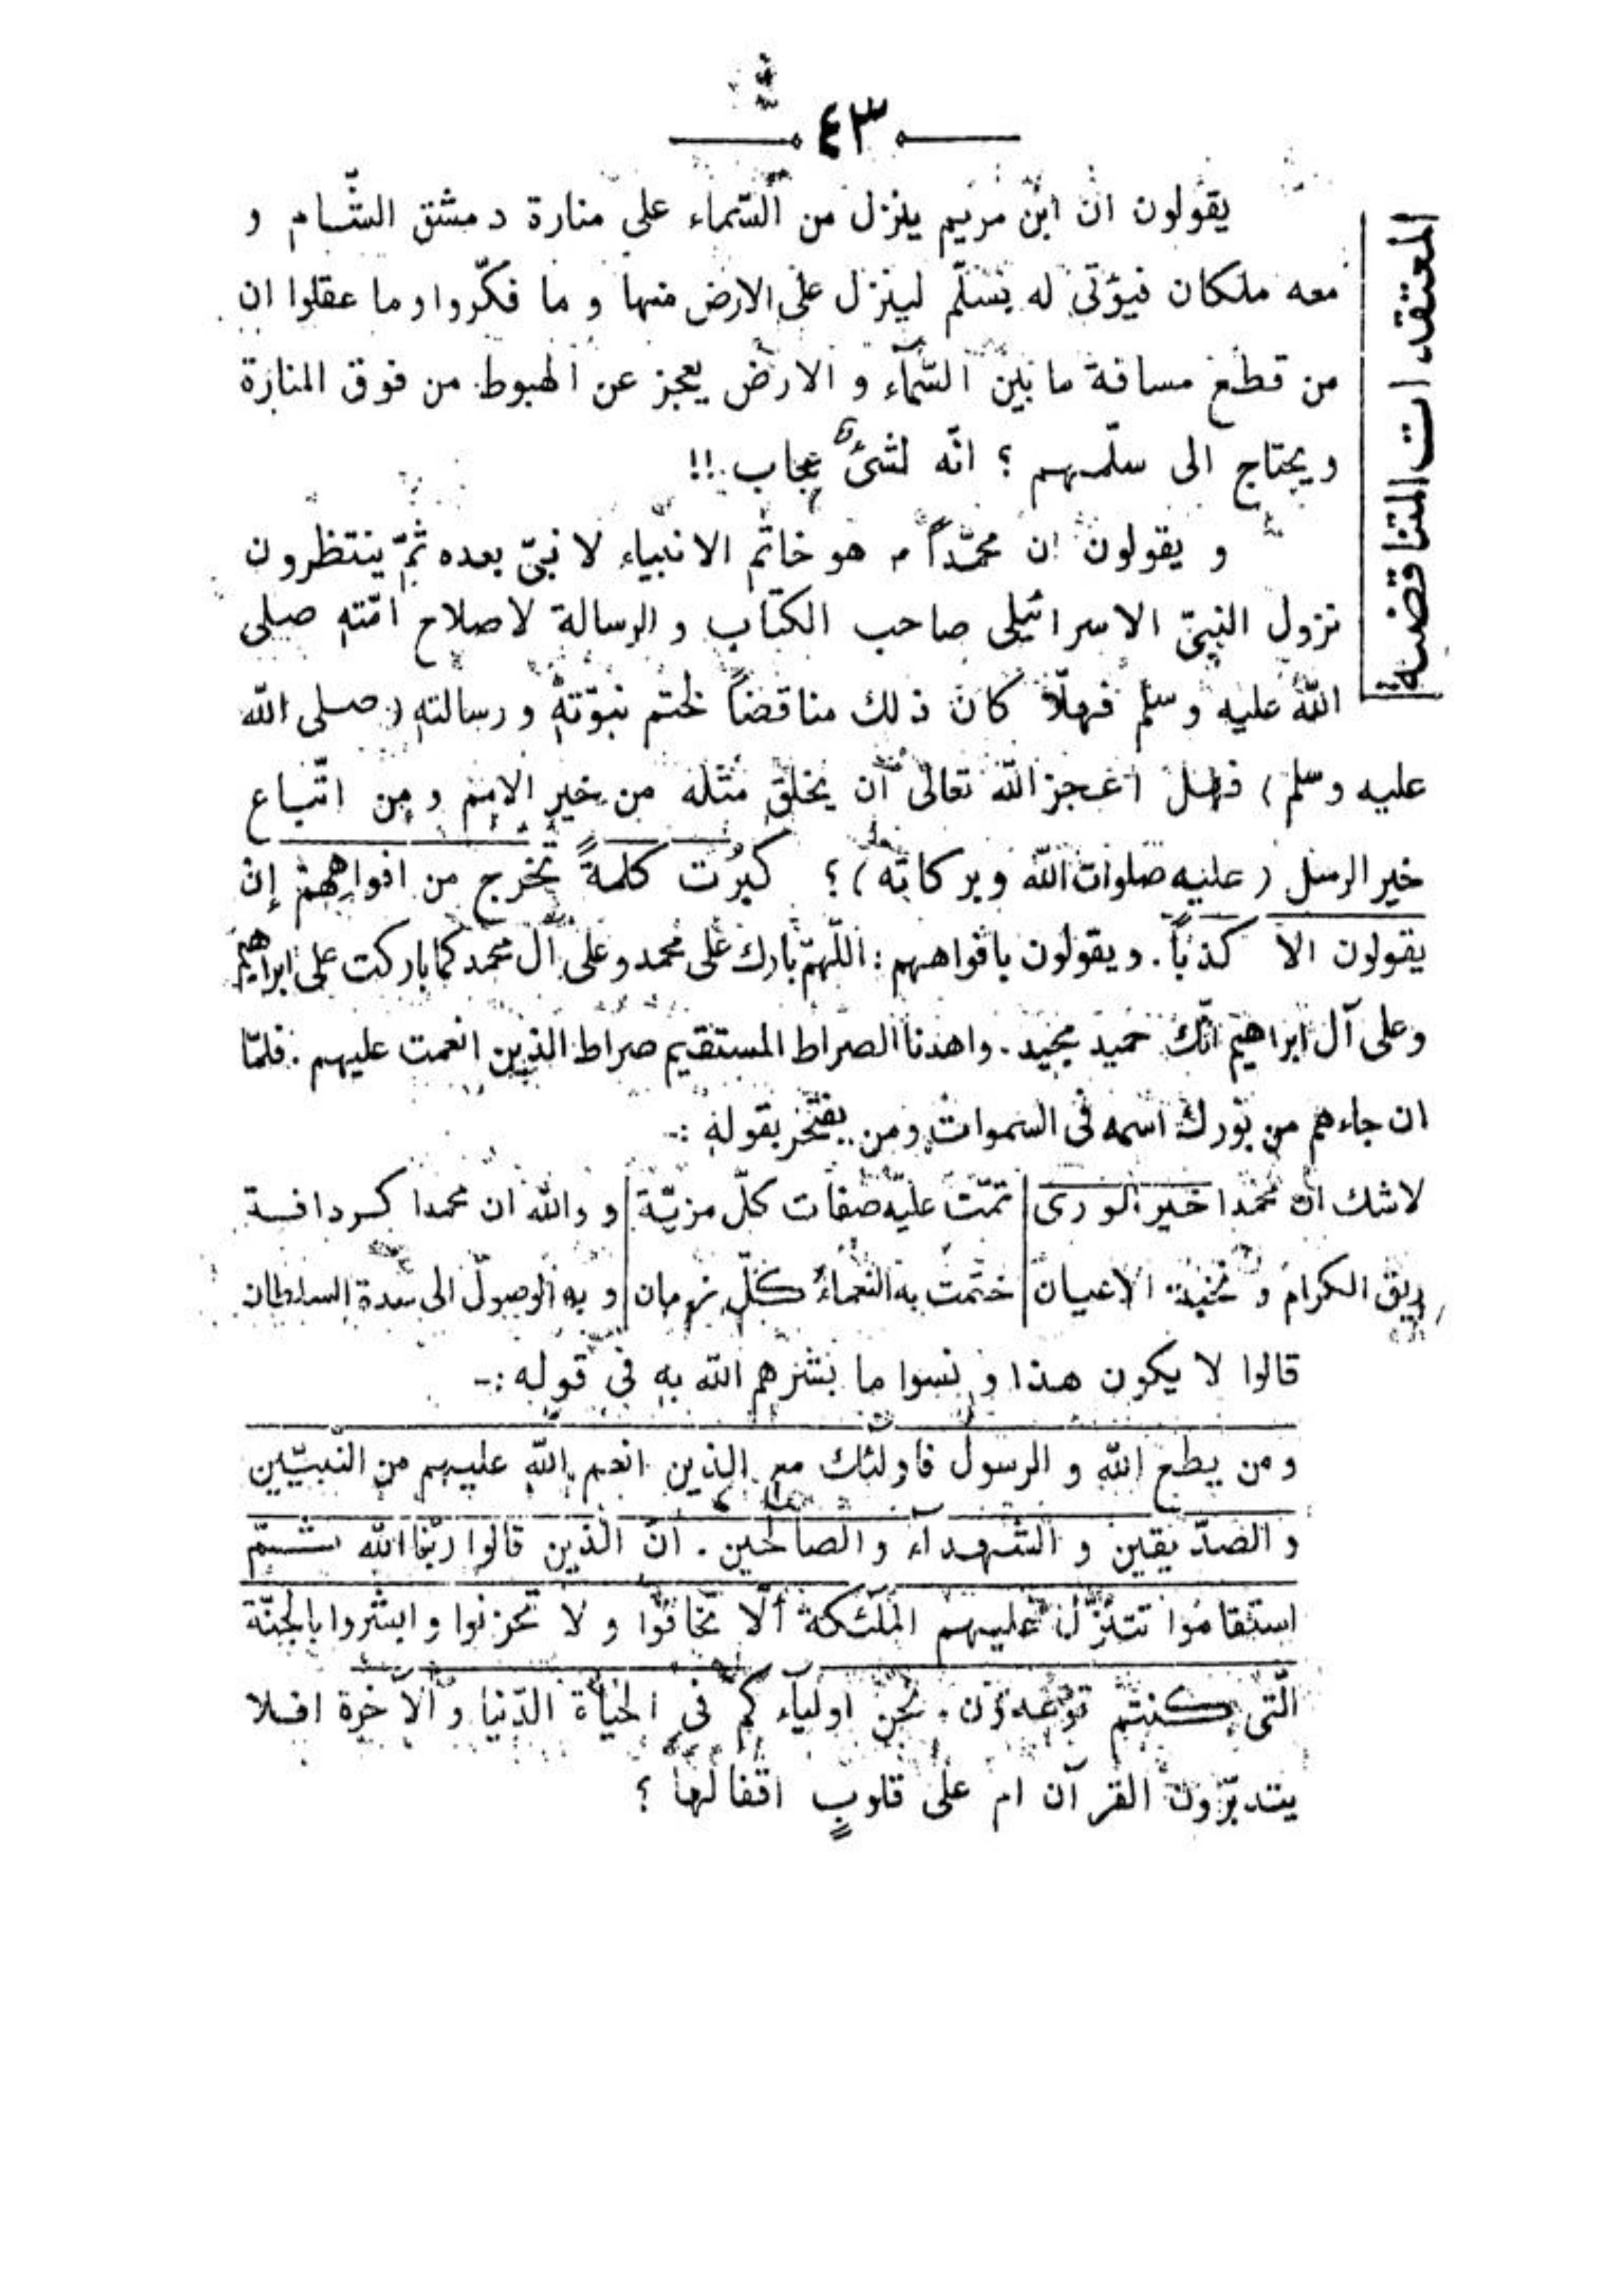 ٤٣
المعتقدات المتناقضة
يقولون ان ابن مريم ينزل من السّماء على منارة دمشق الشّام و
معه ملكان فيؤتى له بسلّم لينزل على الارض منها و ما فكّروا و ما عقلوا ان
من قطع مسافة ما بين السّمآء و الارض يعجز عن الهبوط من فوق المنارة
و يحتاج الى سلّمهم ؟ انّه لشئ عجاب !!
و يقولون ان محمّداً ص هو خاتم الانبياء لا نبىّ بعده ثمّ ينتظرون
نزول النبىّ الاسرائيلى صاحب الكتاب و الرسالة لاصلاح امّته صلى
اللّه عليه و سلّم فهلّا كان ذلك مناقضاً لختم نبوّته و رسالته (صلى اللّه
عليه وسلّم) فهل اعجز اللّه تعالى ان يخلق مثله من خير الامم و من اتّباع
خير الرسل (عليه صلوات اللّه و بركاته) ؟ كبُرت كلمةً تخرج من افواههم إن
يقولون الا كذباً . و يقولون بافواههم : اللّهمّ بارك على محمد و على آل محمد كما باركت على ابراهيم
و على آل ابراهيم انّك حميد مجيد . و اهدنا الصراط المستقيم صراط الذين انعمت عليهم . فلمّا
ان جاءهم من بورك اسمه فى السموات و من يفتخر بقوله :-
لاشك ان محمدا خير الورى | تمّت عليه صفات كلّ مزيّة | و واللّه ان محمدا كردافة
ريق الكرام و نخبة الاعيان | ختمت به النعماء كلّ زمان | و به الوصول الى سدة السلطان
قالوا لا يكون هذا و نسوا ما بشّرهم اللّه به فى قوله :-
و من يطع اللّه و الرسول فاولئك مع الذين انعم اللّه عليهم من النّبيّين
و الصدّيقين و الشهدآء و الصالحين . انّ الّذين قالوا ربّنا اللّه ثمّ
استقاموا تتنزّل عليهم الملٰئكة الّا تخافوا و لا تحزنوا و ابشروا بالجنّة
الّتى كنتم توعدون . نحن اوليآءكم فى الحياة الدّنيا و الآخرة افلا
يتدبّرون القرآن ام على قلوبٍ اقفالها ؟